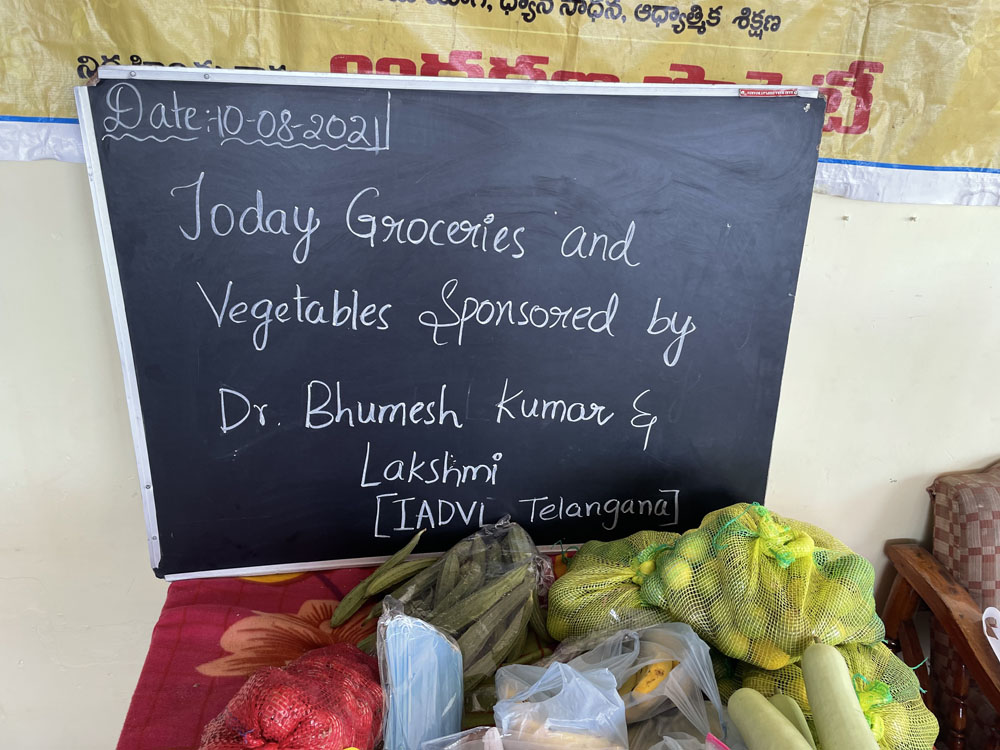 ధ్యాన సాధన, ఆధ్యాత్మిక శిక్షణ
Date:10-08-2021
Today Groceries and
Vegetables Sponsored by
Dr. Bhumesh Kumar &
Lakshmi
[IADVL Telangana]